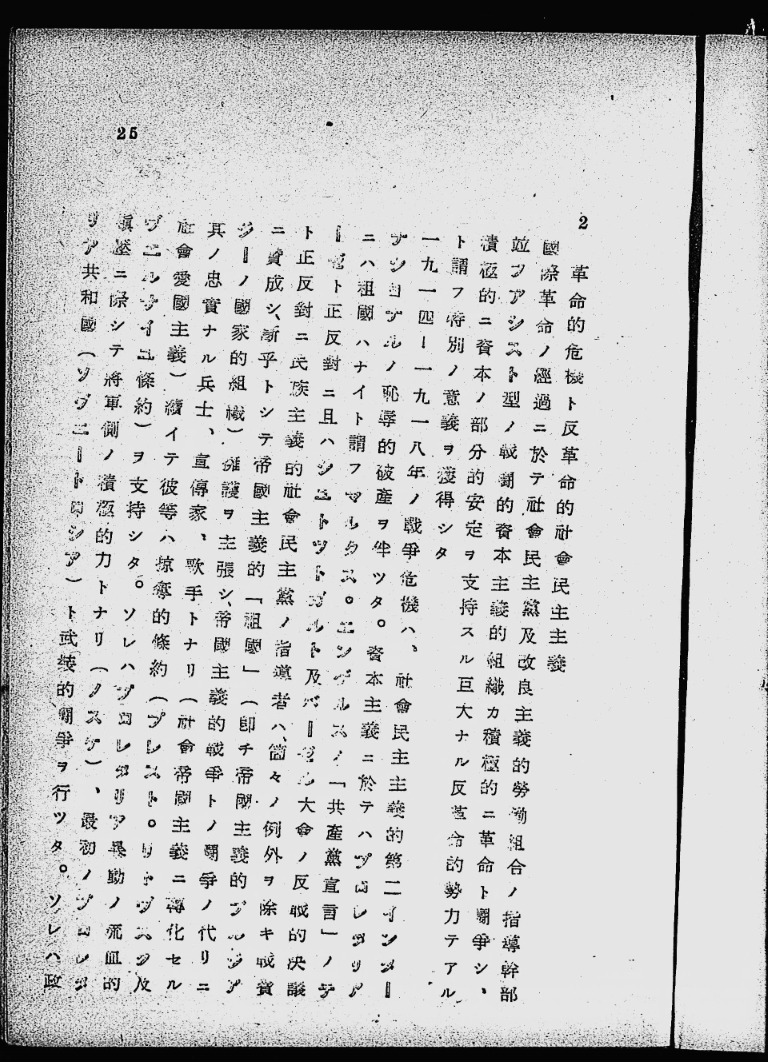 25
2 革命的危機ト反革命的社會民主主義
國際革命ノ經過ニ於テ社會民主黨及改良主義的勞働組合ノ指導幹部
竝フアシスト型ノ戰鬪的資本主義的組織カ積極的ニ革命ト鬪爭シ、
積極的ニ資本ノ部分的安定ヲ支持スル巨大ナル反革命的勢力テアル
ト謂フ特別ノ意義ヲ獲得シタ
一九一四ー一九一八年ノ戰爭危機ハ、社會民主主義的第二インター
ナシヨナルノ恥辱的破產ヲ伴ツタ。資本主義ニ於テハプロレタリア
ニハ祖國ハナイト謂フマルクス。エンゲルスノ「共產黨宣言」ノテ
ーゼト正反對ニ且ハシユトツトガルト及バーゼル大會ノ反戰的決議
ト正反對ニ民族主義的社會民主黨ノ指導者ハ、箇々ノ例外ヲ除キ戰費
ニ賛成シ、斷乎トシテ帝國主義的「祖國」（卽チ帝國主義的ブルジア
ジーノ國家的組織）擁護ヲ主張シ、帝國主義的戰爭トノ鬪爭ノ代リニ
其ノ忠實ナル兵士、宣傳家、歌手トナリ（社會帝國主義ニ轉化セル
社會愛國主義）續イテ彼等ハ掠奪的條約（ブレスト。リトヴスク及
ヴエルサイユ條約）ヲ支持シタ。ソレハプロレタリア暴動ノ流血的
鎭壓ニ際シテ將軍側ノ積極的力トナリ（ノスケ）、最初ノプロレタ
リア共和國（ソヴエートロシア）ト武裝的鬪爭ヲ行ツタ。ソレハ政